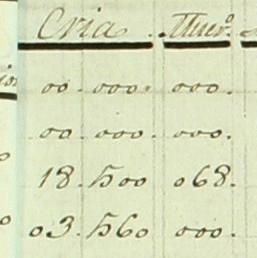 Cria. Nuo.
00. 000. 000.
00. 000. 000.
18. 500 068.
03. 560 000.